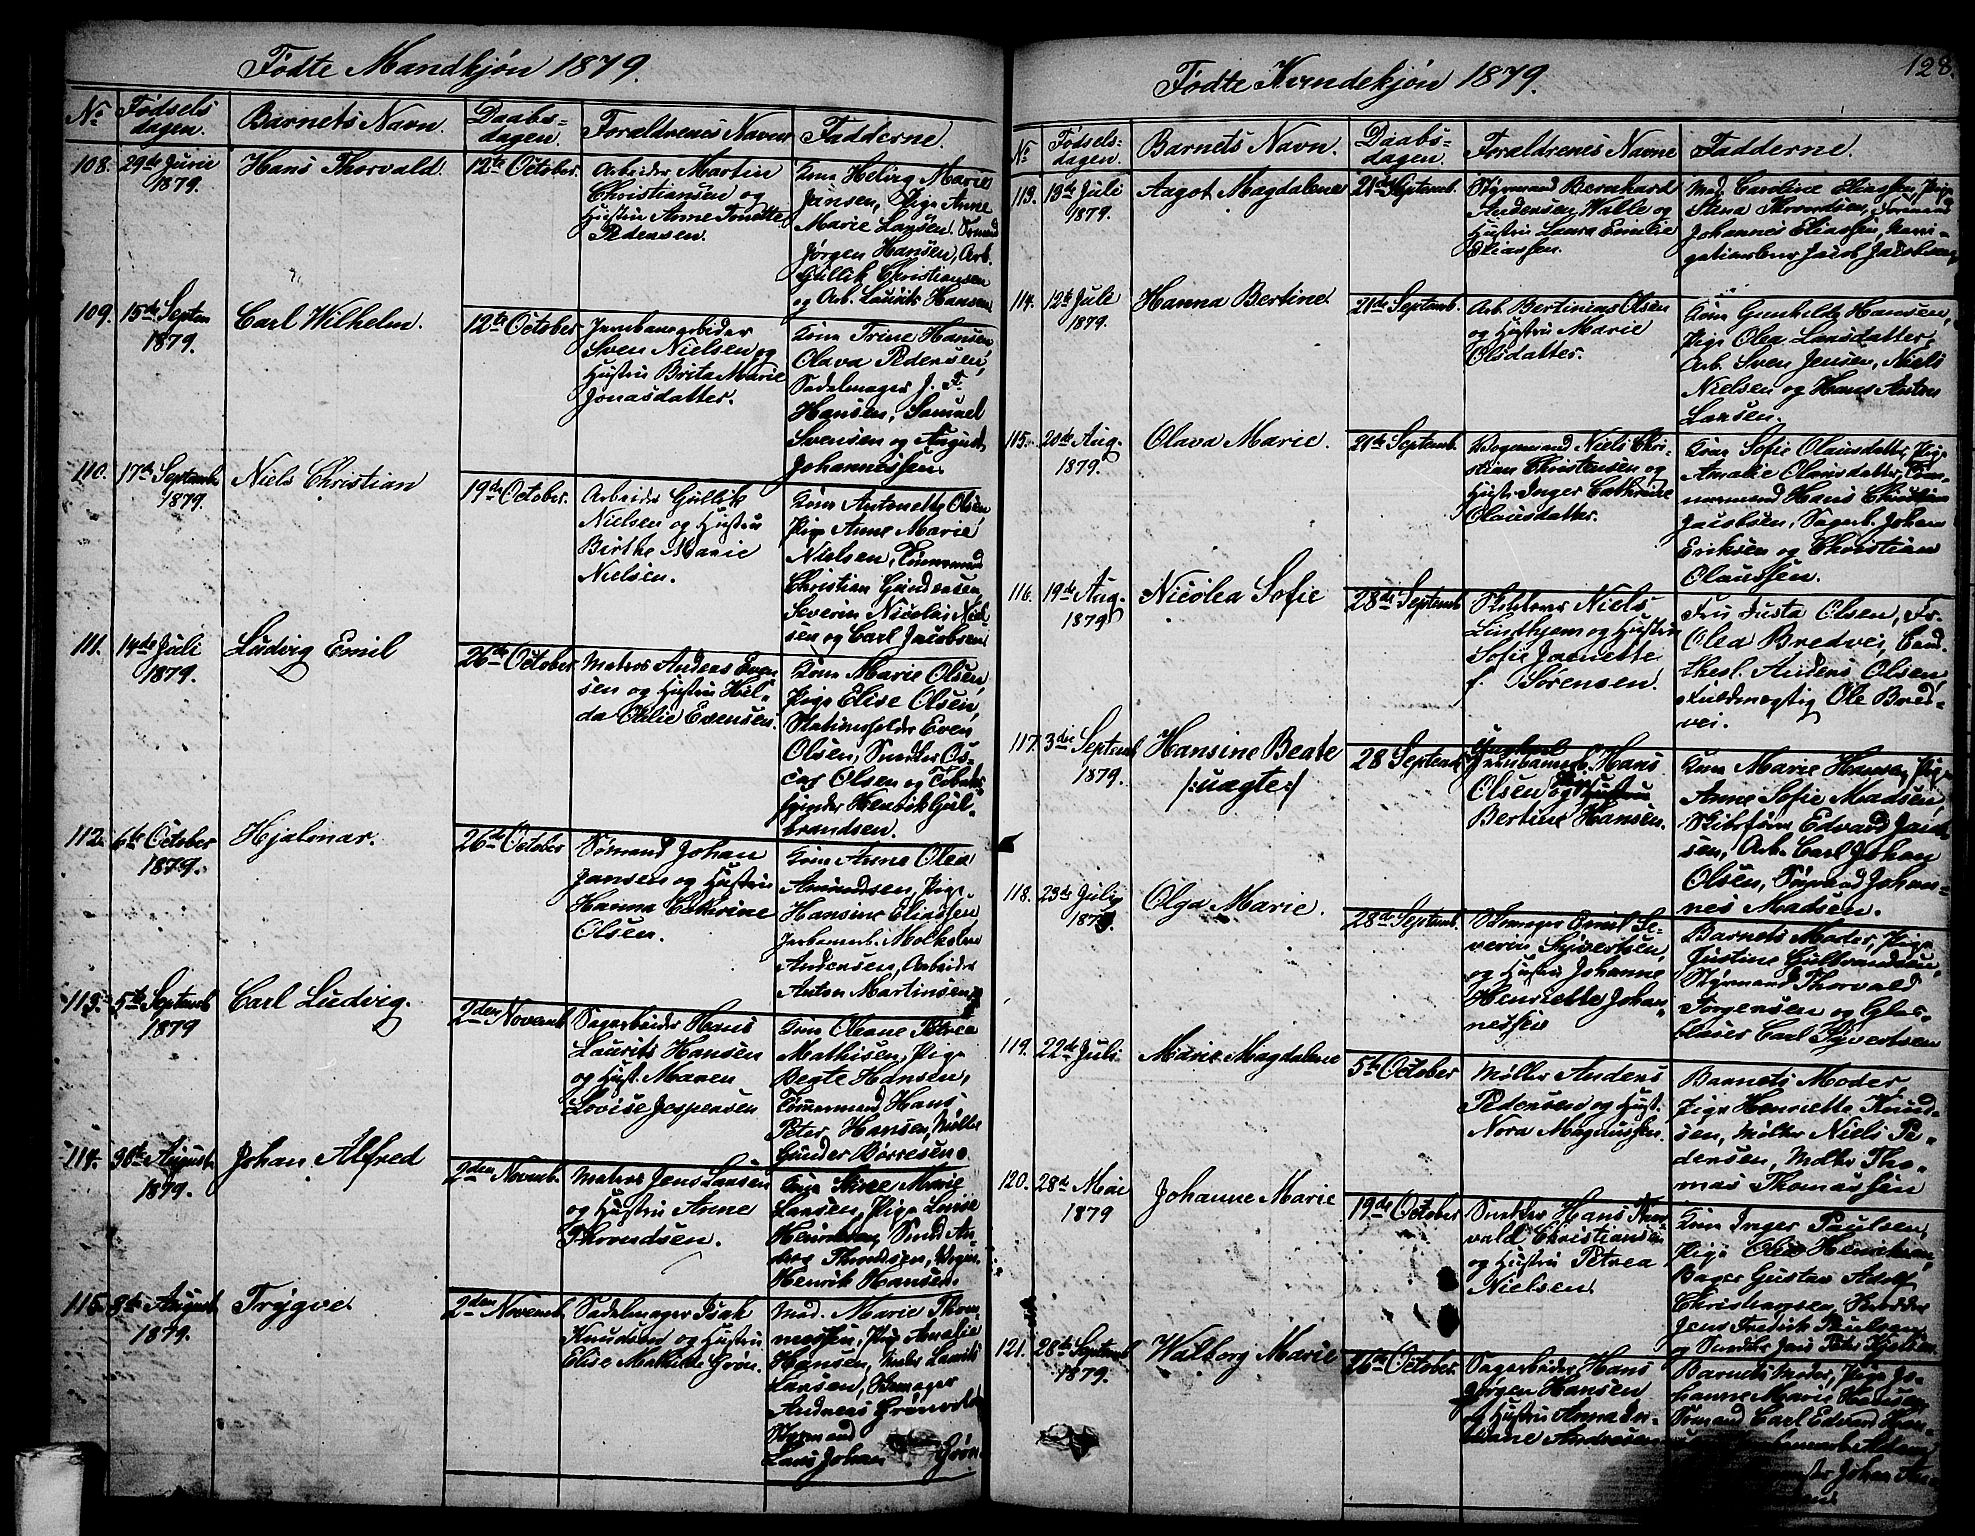 Fødte Mandkjøn 1879.
No Fødselsdagen. Barnets Navn. Daabsdagen. Forældrenes Navne Fadderne.
108. 29de Junie 1879. Hans Thorvald. 12te October.
Arbeider Martin
Christiansen og
Hustru Anne
Pedersen.
Kone Helvig Marie
Jansen, Pige Anne
Marie Larsen, Sømand
Jørgen Hansen, Arb.
Gullik Christiansen
og Arb. Laurits Hansen
109. 15de Septem 1879. Carl Wilhelm. 12te October
Jernbanearbeider
Sven Nielsen og
Hustru Brita Marie
Jonasdatter.
Kone Trine Hansen
Olava Pedersen,
Sadelmager J. F.
Hansen, Samuel
Svensen og August
Johannessen
110. 17de Septemb 1879. Niels Christian 19de October.
Arbeider Gullik
Nielsen og Hustru
Birthe Marie
Nielsen.
Kone Antonette Olsen
Pige Anne Marie
Nielsen, Tømmermand
Christian Gundersen
Severin Nicolai Niel-
sen og Carl Jacobsen
111. 14de Juli 1879. Ludvig Emil 26de October
Matros Anders Even-
sen og Hustru Hul-
da Otilie Evensen.
Kone Marie Olsen,
Pige Elise Olsen,
Stationsholder Even
Olsen, Snedker Os-
car Olsen og Tobaks-
spinder Henrik Gul-
brandsen.
112. 6te October 1879. Hjalmar. 26de October
Sømand Johan
Jansen og Hustru
Hanna Cathrine
Olsen.
Kone Anne Olea
Amundsen, Pige
Hansine Eliassen
Jernbanearb.
Andersen, Arbeider
Anton Martinsen
113. 5te Septemb 1879 Carl Ludvig. 2den Novemb
Sagarbeider Hans
Laurits Hansen
og Hust. Maren
Lovise Jespersen
Kone Oleane Petrea
Mathisen, Pige
Begte Hansen,
Tømmermand Hans
Peter Hansen, Møller
Gunder Børresen.
114. 30te August 1879. Johan Alfred 2den Novemb.
Matros Jens Larsen
og Hustru Anne
Thorundsen.
Kone Marie
Larsen, Pige Lovise
Henriksen, Smed An-
dreas Thordsen,
Henrik Hansen.
115. 8de August 1879. Trygve 2den Novemb
Sadelmager Isak
Knudsen og Hustru
Elise Mathilde Grøn.
Mad. Marie Thom-
messen, Pige Amalie
Hansen, Laurits
Larsen,
Andreas Grønvold
Styrmand
Lars Johan Grøn.
Fødte Kvindekjøn 1879.
128.
No Fødselsdagen. Barnets Navn. Daabsdagen. Forældrenes Navne Fadderne.
113. 13de Juli 1879. Aagot Magdalene 21de Septemb.
Styrmand Bernhard
Andersen Walle og
Hustru Laura Emilie
Eliassen.
Mad. Caroline Eliassen, Pige
Stena Thorvaldsen, Sømand
Johannes Eliassen, Navi-
gationslærer Jacob Jacobsen
114. 12te Juli 1879. Hanna Bertine 21de Septemb.
Arb. Bertinius Olsen
og Hustru Marie
Olsdatter.
Kone Gunhilde Hansen,
Pige Olea Larsdatter,
Arb. Sven Jensen, Niels
Nielsen og Hans Anton
Larsen.
115. 20de Aug. 1879. Olava Marie. 21de Septemb.
Vognmand Niels Chri-
stian Christensen og
Hustr. Inger Cathrine
Olausdatter.
Kone Sofie Olausdatter, Pige
Amalie Olausdatter, Tøm-
mermand Hans Christian
Jacobsen, Sagarb. Johan
Eriksen og Christian
Olaussen.
116. 19de Aug. 1879 Nicolea Sofie 28de Septemb
Skibsfører Niels
Lindhjem og Hustru
Sofie Jamette
f. Sørensen.
Fru Justa Olsen, Fr.
Olea Bredvei, Cand.
theol. Anders Olsen,
Fuldmægtig Ole Bred-
vei.
117. 3die Septemb 1879. Hansine Beate /:uægte:/ 28 Septemb
Ungkarl
Jernbanearb. Hans
Olsen og
Bertine Hansen.
Kone Marie Hansen, Pige
Anne Sofie Madsen,
Skibsfører Edvard
sen, Arb. Carl Johan
Olsen, Sømand Johan-
nes Madsen.
118. 23de Juli 1879. Olga Marie. 28de Septemb.
Skomager Emil Se-
verin Syvertsen,
og Hustru Johanne
Henriette Johan-
nessen
Barnets Moder, Pige
Justine Gulbrandsen,
Styrmand Thorvald
Jørgensen og Glas-
blæser Carl Syvertsen
119. 22de Juli Marie Magdalene 5te October
Møller Anders
Pedersen og Hust.
Nora Magnussen.
Barnets Moder
Pige Henriette Knud-
sen, Møller Niels Pe-
dersen, Møller Tho-
mas Thomassen
120. 28de Mai 1879 Johanne Marie 19de October
Snedker Hans Thor-
vald Christiansen
og Hustru Petrea
Nielsen
Kone Inger Paulsen,
Pige Olise Henriksen,
Bager Gustav Adolf
Christiansen,
Jens Fredrik Paulsen
og Snedker
121. 28de Septemb 1879. Walborg Marie 26de October
Sagarbeider Hans
Jørgen Hansen
og Hustru Anna
Andresen
Barnets Moder, Pige Jo-
hanne Marie Hansen,
Sømand Carl Edvard Han-
Johan An-